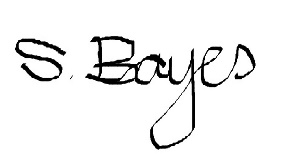 S. Bayes